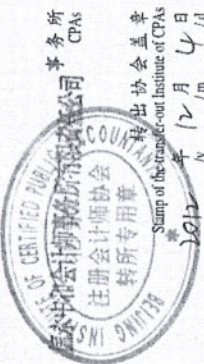 事务所
CPAs
信永中和会计师事务所有限责任公司
转出协会盖章
Stamp of the transfer-out Institute of CPAs
2012年 12月 4日
/y /m /d
BEIJING INSTITUTE OF CERTIFIED PUBLIC ACCOUNTANTS
注册会计师协会
转所专用章